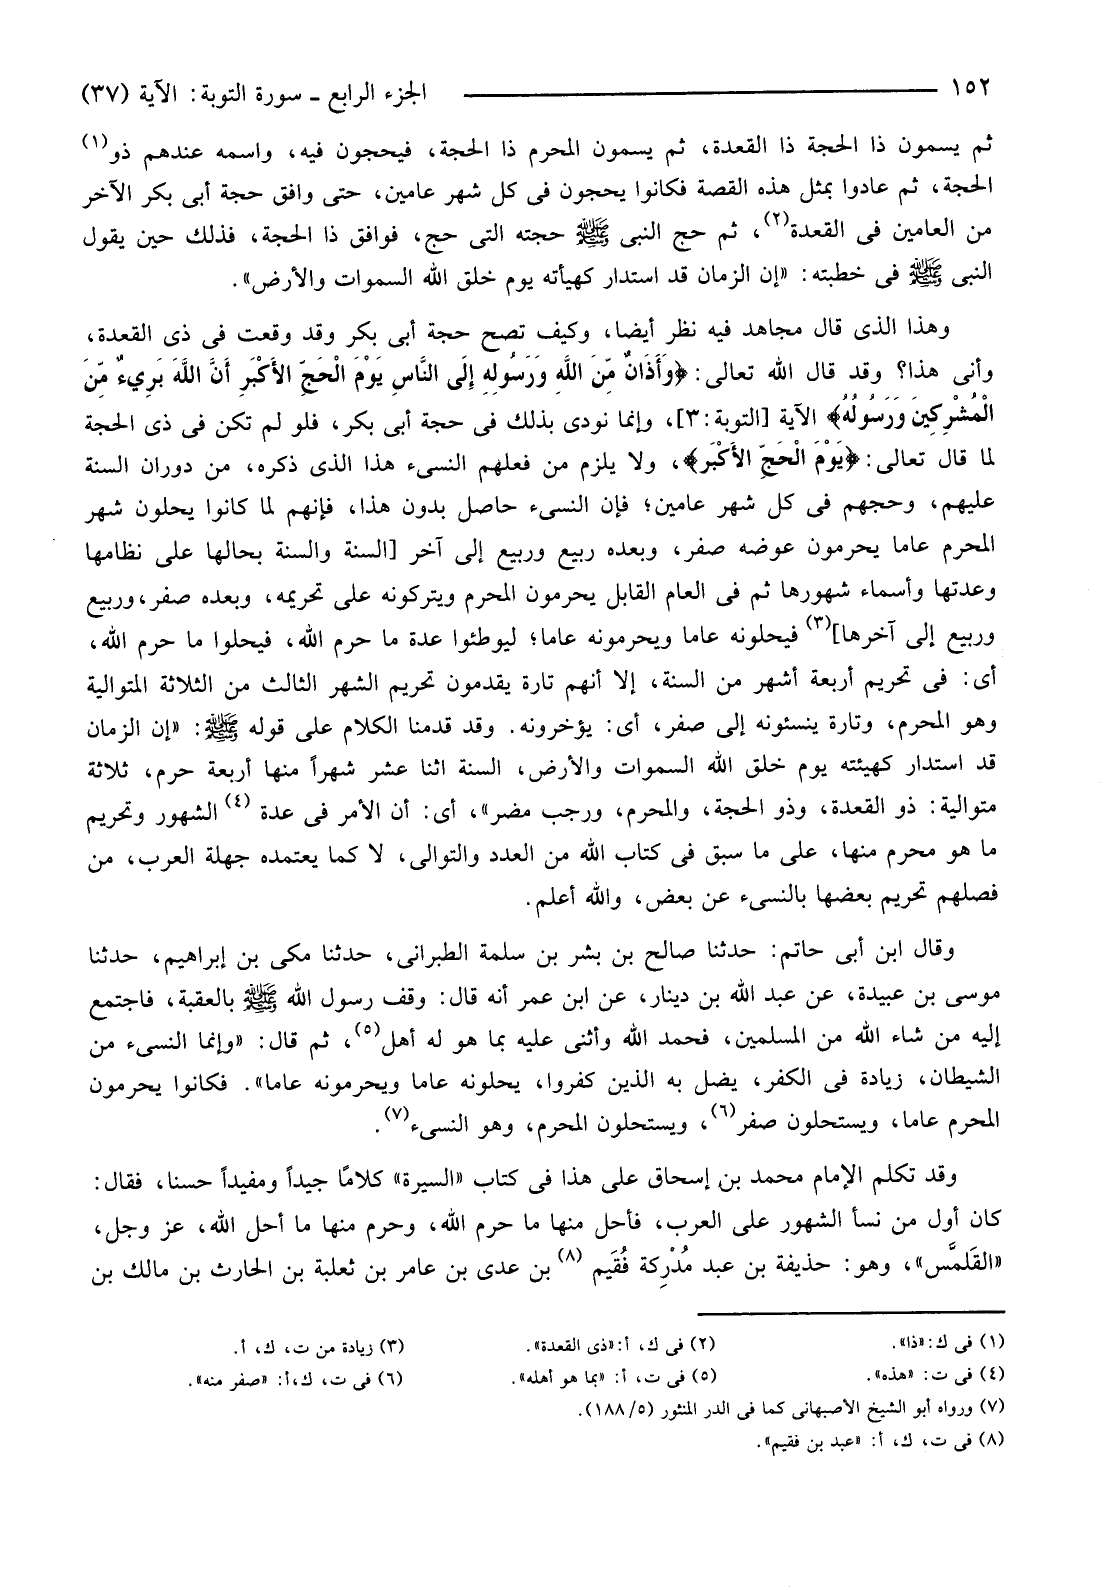 ١٥٢ الجزء الرابع ـ سورة التوبة: الآية (٣٧)
ثم يسمون ذا الحجة ذا القعدة، ثم يسمون المحرم ذا الحجة، فيحجون فيه، واسمه عندهم ذو(١)
الحجة، ثم عادوا بمثل هذه القصة فكانوا يحجون فى كل شهر عامين، حتى وافق حجة أبى بكر الآخر
من العامين فى القعدة(٢)، ثم حج النبى ﷺ حجته التى حج، فوافق ذا الحجة، فذلك حين يقول
النبى ﷺ فى خطبته: «إن الزمان قد استدار كهيأته يوم خلق الله السموات والأرض».
وهذا الذى قال مجاهد فيه نظر أيضا، وكيف تصح حجة أبى بكر وقد وقعت فى ذى القعدة،
وأنى هذا؟ وقد قال الله تعالى: ﴿وَأَذَانٌ مِّنَ اللَّهِ وَرَسُولِهِ إِلَى النَّاسِ يَوْمَ الْحَجِّ الأَكْبَرِ أَنَّ اللَّهَ بَرِيءٌ مِّنَ
الْمُشْرِكِينَ وَرَسُولُهُ﴾ الآية [التوبة:٣]، وإنما نودى بذلك فى حجة أبى بكر، فلو لم تكن فى ذى الحجة
لما قال تعالى: ﴿يَوْمَ الْحَجِّ الأَكْبَرِ﴾، ولا يلزم من فعلهم النسىء هذا الذى ذكره، من دوران السنة
عليهم، وحجهم فى كل شهر عامين؛ فإن النسىء حاصل بدون هذا، فإنهم لما كانوا يحلون شهر
المحرم عاما يحرمون عوضه صفر، وبعده ربيع وربيع إلى آخر [السنة والسنة بحالها على نظامها
وعدتها وأسماء شهورها ثم فى العام القابل يحرمون المحرم ويتركونه على تحريمه، وبعده صفر،وربيع
وربيع إلى آخرها](٣) فيحلونه عاما ويحرمونه عاما؛ ليوطئوا عدة ما حرم الله، فيحلوا ما حرم الله،
أى: فى تحريم أربعة أشهر من السنة، إلا أنهم تارة يقدمون تحريم الشهر الثالث من الثلاثة المتوالية
وهو المحرم، وتارة ينسئونه إلى صفر، أى: يؤخرونه. وقد قدمنا الكلام على قوله ﷺ: «إن الزمان
قد استدار كهيئته يوم خلق الله السموات والأرض، السنة اثنا عشر شهراً منها أربعة حرم، ثلاثة
متوالية: ذو القعدة، وذو الحجة، والمحرم، ورجب مضر»، أى: أن الأمر فى عدة (٤) الشهور وتحريم
ما هو محرم منها، على ما سبق فى كتاب الله من العدد والتوالى، لا كما يعتمده جهلة العرب، من
فصلهم تحريم بعضها بالنسىء عن بعض، والله أعلم.
وقال ابن أبى حاتم: حدثنا صالح بن بشر بن سلمة الطبرانى، حدثنا مكى بن إبراهيم، حدثنا
موسى بن عبيدة، عن عبد الله بن دينار، عن ابن عمر أنه قال: وقف رسول الله ﷺ بالعقبة، فاجتمع
إليه من شاء الله من المسلمين، فحمد الله وأثنى عليه بما هو له أهل(٥)، ثم قال: «وإنما النسىء من
الشيطان، زيادة فى الكفر، يضل به الذين كفروا، يحلونه عاما ويحرمونه عاما». فكانوا يحرمون
المحرم عاما، ويستحلون صفر(٦)، ويستحلون المحرم، وهو النسىء(٧).
وقد تكلم الإمام محمد بن إسحاق على هذا فى كتاب «السيرة» كلامًا جيداً ومفيداً حسنا، فقال:
كان أول من نسأ الشهور على العرب، فأحل منها ما حرم الله، وحرم منها ما أحل الله، عز وجل،
«القَلمَّس»، وهو: حذيفة بن عبد مُدْرِكة فُقَيم (٨) بن عدى بن عامر بن ثعلبة بن الحارث بن مالك بن
(١) فى ك:«ذا». (٢) فى ك، أ:«ذى القعدة». (٣) زيادة من ت، ك، أ.
(٤) فى ت: «هذه». (٥) فى ت، أ: «بما هو أهله». (٦) فى ت، ك،أ: «صفر منه».
(٧) ورواه أبو الشيخ الأصبهانى كما فى الدر المنثور (١٨٨/٥).
(٨) فى ت، ك، أ: «عبد بن فقيم».